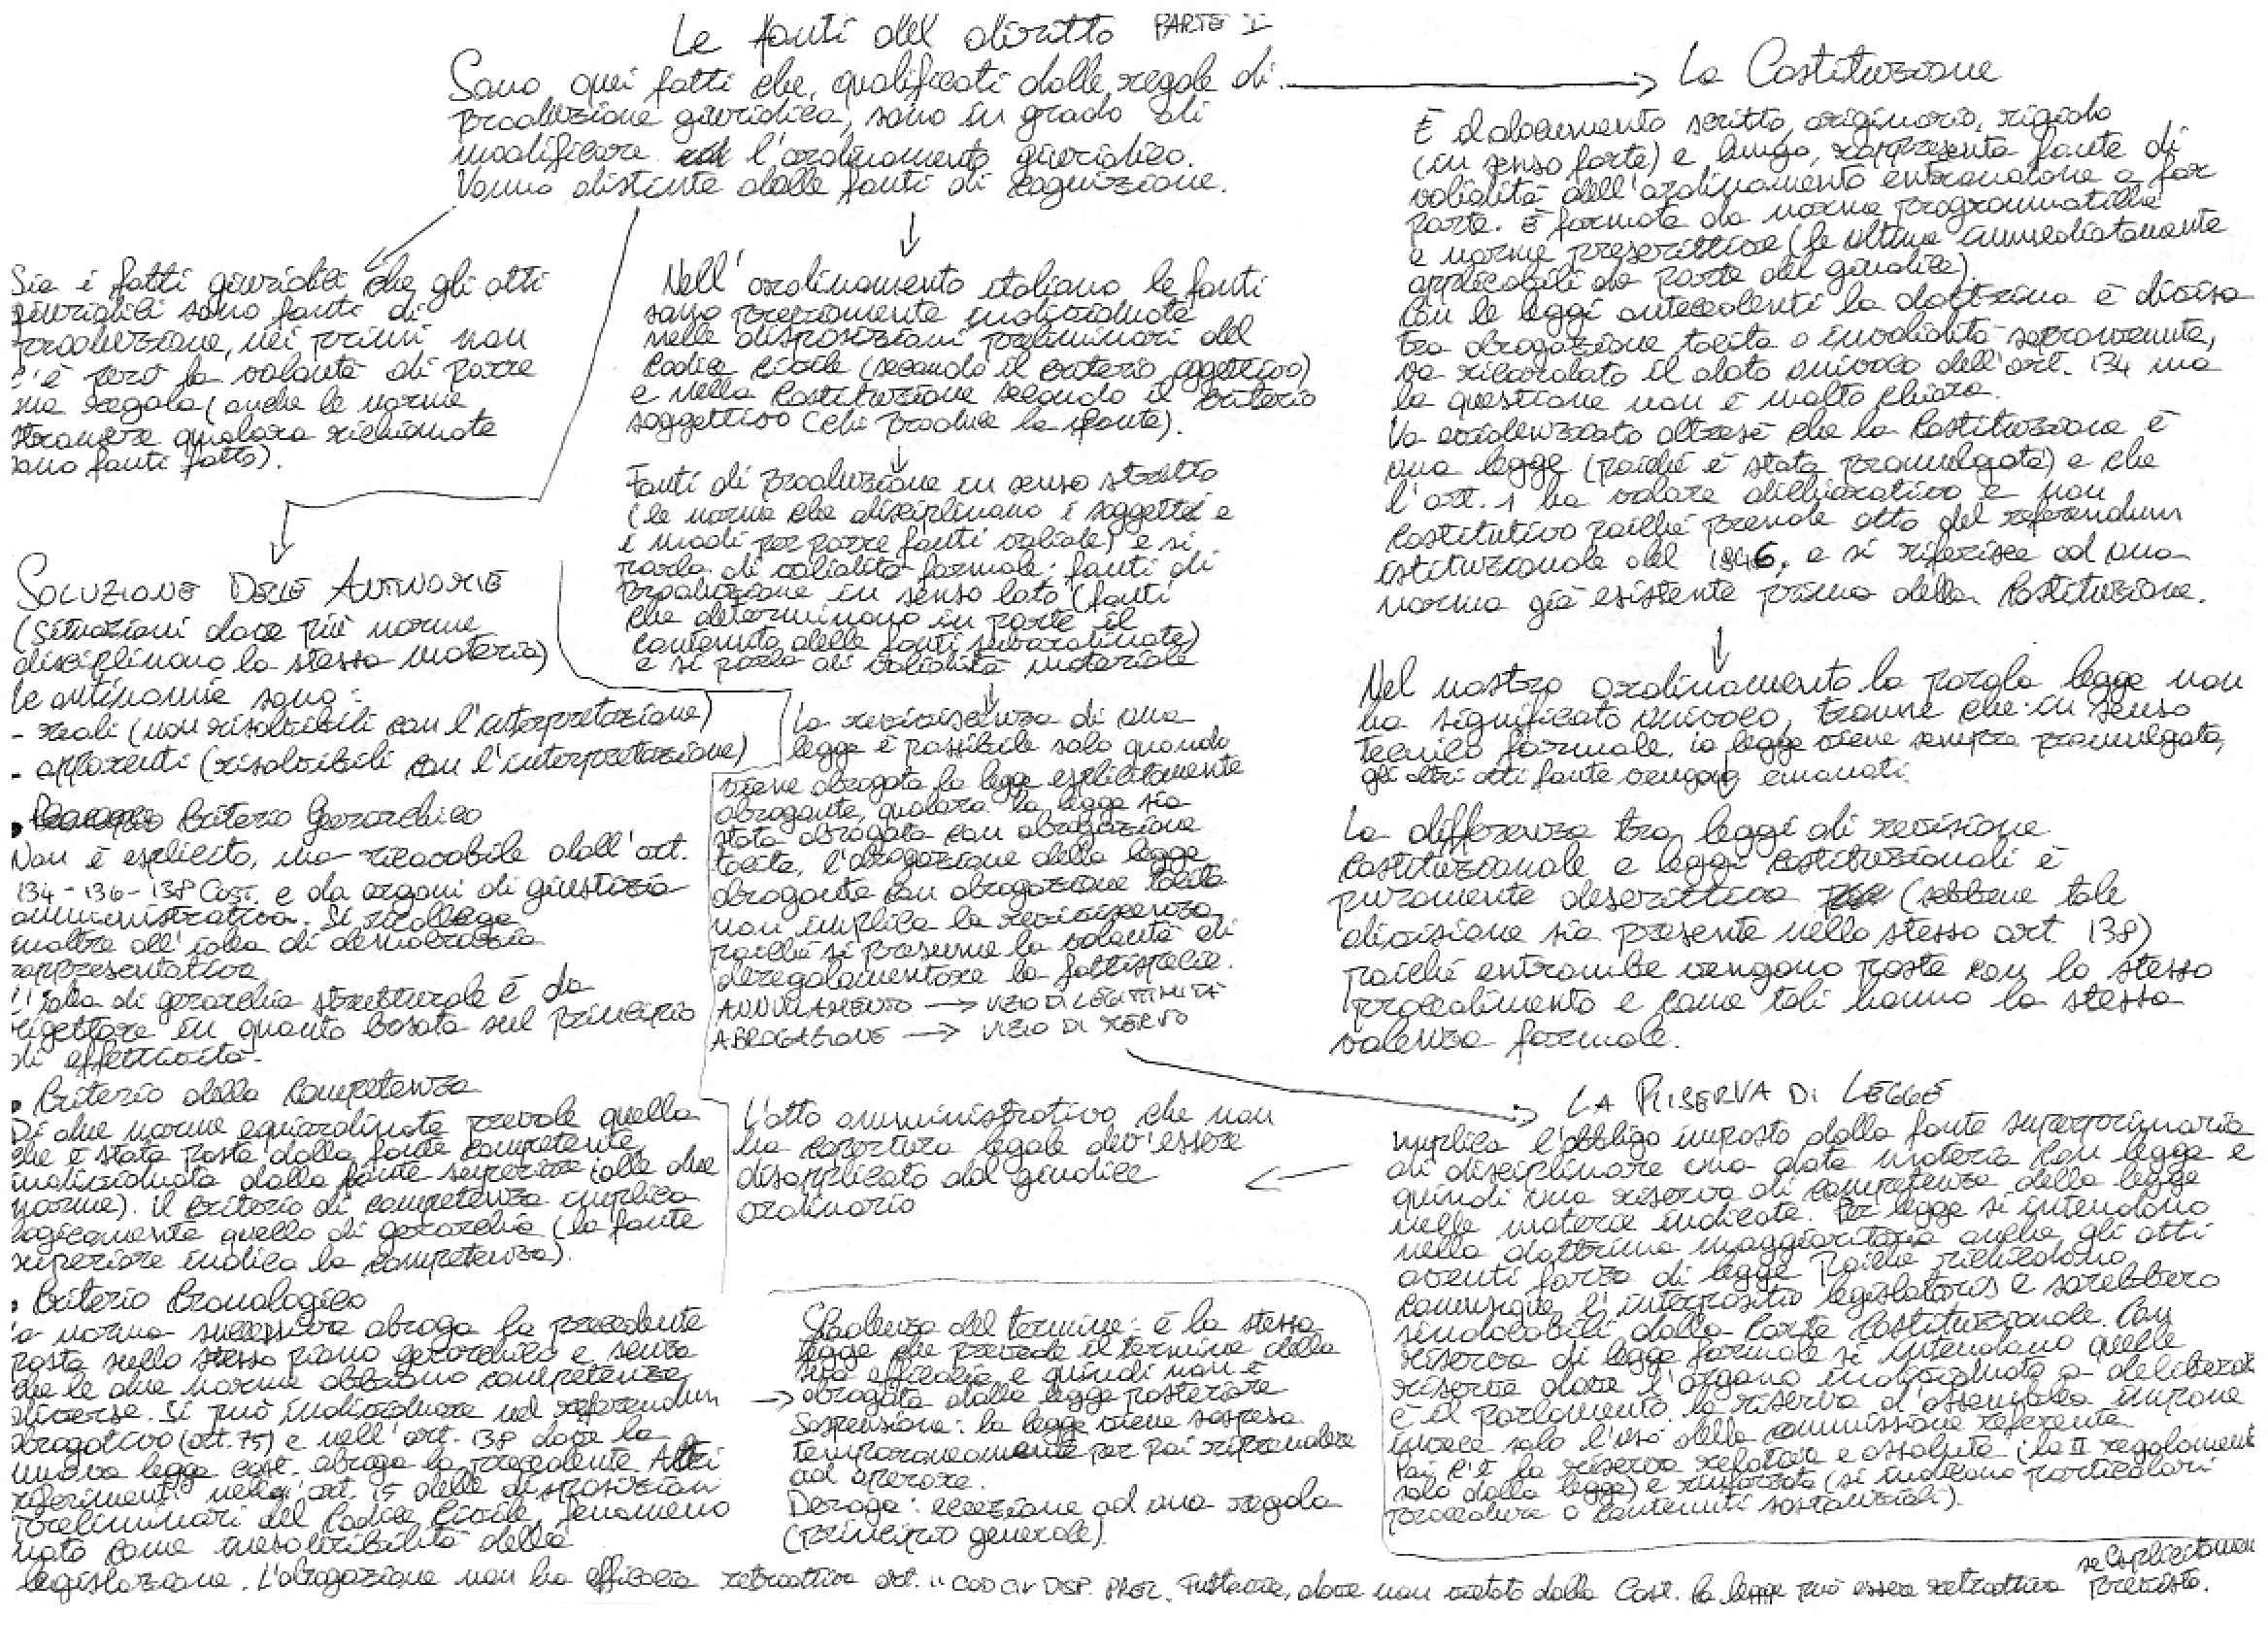 Le fonti del diritto PARTE I
Sono quei fatti che, qualificati dalle regole di
produzione giuridica, sono in grado di
modificare l'ordinamento giuridico.
Vanno distinte dalle fonti di cognizione.
Sia i fatti giuridici che gli atti
giuridici sono fonti di
produzione, nei primi non
c'è però la volontà di porre
una regola (anche le norme
straniere qualora richiamate
sono fonti fatto).
SOLUZIONE DELLE ANTINOMIE
(situazioni dove più norme
disciplinano la stessa materia)
le antinomie sono:
- reali (non risolvibili con l'interpretazione)
- apparenti (risolvibili con l'interpretazione)
• Criterio Gerarchico
Non è esplicito, ma ricavabile dall'art.
134-136-138 Cost. e da organi di giustizia
amministrativa. Si ricollega
inoltre all'idea di democrazia
rappresentativa
L'idea di gerarchia strutturale è da
rigettare in quanto basata sul principio
di effettività.
• Criterio della competenza
Di due norme equiordinate prevale quella
che è stata posta dalla fonte competente,
individuata dalla fonte superiore (alle due
norme). il criterio di competenza implica
logicamente quello di gerarchia (la fonte
superiore indica la competenza).
• Criterio Cronologico
la norma successiva abroga la precedente
posta sullo stesso piano gerarchico e senza
che le due norme abbiano competenze
diverse. Si può individuare nel referendum
abrogativo (art. 75) e nell'art. 138 dove la
nuova legge cost. abroga la precedente. Altri
riferimenti nell'art. 15 delle disposizioni
preliminari del Codice Civile, fenomeno
noto come inesauribilità della
legislazione. L'abrogazione non ha efficacia retroattiva art. 11 COD CIV DISP. PREL. Tuttavia, dove non vietato dalla Cost. la legge può essere retroattiva se esplicitamente
previsto.
Nell'ordinamento italiano le fonti
sono precisamente individuate
nelle disposizioni preliminari del
Codice Civile (secondo il criterio oggettivo)
e nella Costituzione secondo il criterio
soggettivo (chi produce la fonte).
Fonti di produzione in senso stretto
(le norme che disciplinano i soggetti e
i modi per porre fonti valide) e si
parla di validità formale; fonti di
produzione in senso lato (fonti
che determinano in parte il
contenuto delle fonti subordinate)
e si parla di validità materiale
La reviviscenza di una
legge è possibile solo quando
viene abrogata la legge esplicitamente
abrogante, qualora la legge sia
stata abrogata con abrogazione
tacita, l'abrogazione della legge
abrogante con abrogazione tacita
non implica la reviviscenza,
poiché si presume la volontà di
deregolamentare la fattispecie.
ANNULLAMENTO → VIZIO DI LEGITTIMITÀ
ABROGAZIONE → VIZIO DI MERITO
L'atto amministrativo che non
ha copertura legale dev'essere
disapplicato dal giudice
ordinario
Scadenza del termine: è la stessa
legge che prevede il termine della
sua efficacia e quindi non è
abrogata dalla legge posteriore
Sospensione: la legge viene sospesa
temporaneamente per poi riprendere
ad operare.
Deroga: eccezione ad una regola
(principio generale)
La Costituzione
È il documento scritto, originario, rigido
(in senso forte) e lungo, rappresenta fonte di
validità dell'ordinamento entrandone a far
parte. È formata da norme programmatiche
e norme prescrittive (le ultime immediatamente
applicabili da parte del giudice).
Con le leggi antecedenti la dottrina è divisa
tra abrogazione tacita o invalidità sopravvenuta,
va ricordato il dato univoco dell'art. 134 ma
la questione non è molto chiara.
Va evidenziato altresì che la Costituzione è
una legge (poiché è stata promulgata) e che
l'art. 1 ha valore dichiarativo e non
costitutivo poiché prende atto del referendum
istituzionale del 1946, e si riferisce ad una
norma già esistente prima della Costituzione.
Nel nostro ordinamento la parola legge non
ha significato univoco, tranne che in senso
tecnico formale. la legge viene sempre promulgata,
gli altri atti fonte vengono emanati.
La differenza tra leggi di revisione
costituzionale e leggi costituzionali è
puramente descrittiva (sebbene tale
divisione sia presente nello stesso art. 138)
poiché entrambe vengono poste con lo stesso
procedimento e come tali hanno la stessa
valenza formale.
LA RISERVA DI LEGGE
implica l'obbligo imposto dalla fonte superprimaria
di disciplinare una data materia con legge e
quindi una riserva di competenza della legge
nelle materie indicate. Per legge si intendono
nella dottrina maggioritaria anche gli atti
aventi forza di legge poiché richiedono
comunque l'interpositio legislatoris e sarebbero
sindacabili dalla Corte Costituzionale. Con
riserva di legge formale si intendono quelle
riserve dove l'organo individuato a deliberare
è il parlamento. la riserva d'assemblea impone
invece solo l'uso della commissione referente
Poi c'è la riserva relativa e assoluta (la II regolamentata
solo dalla legge) e rinforzata (si indicano particolari
procedure o contenuti sostanziali).